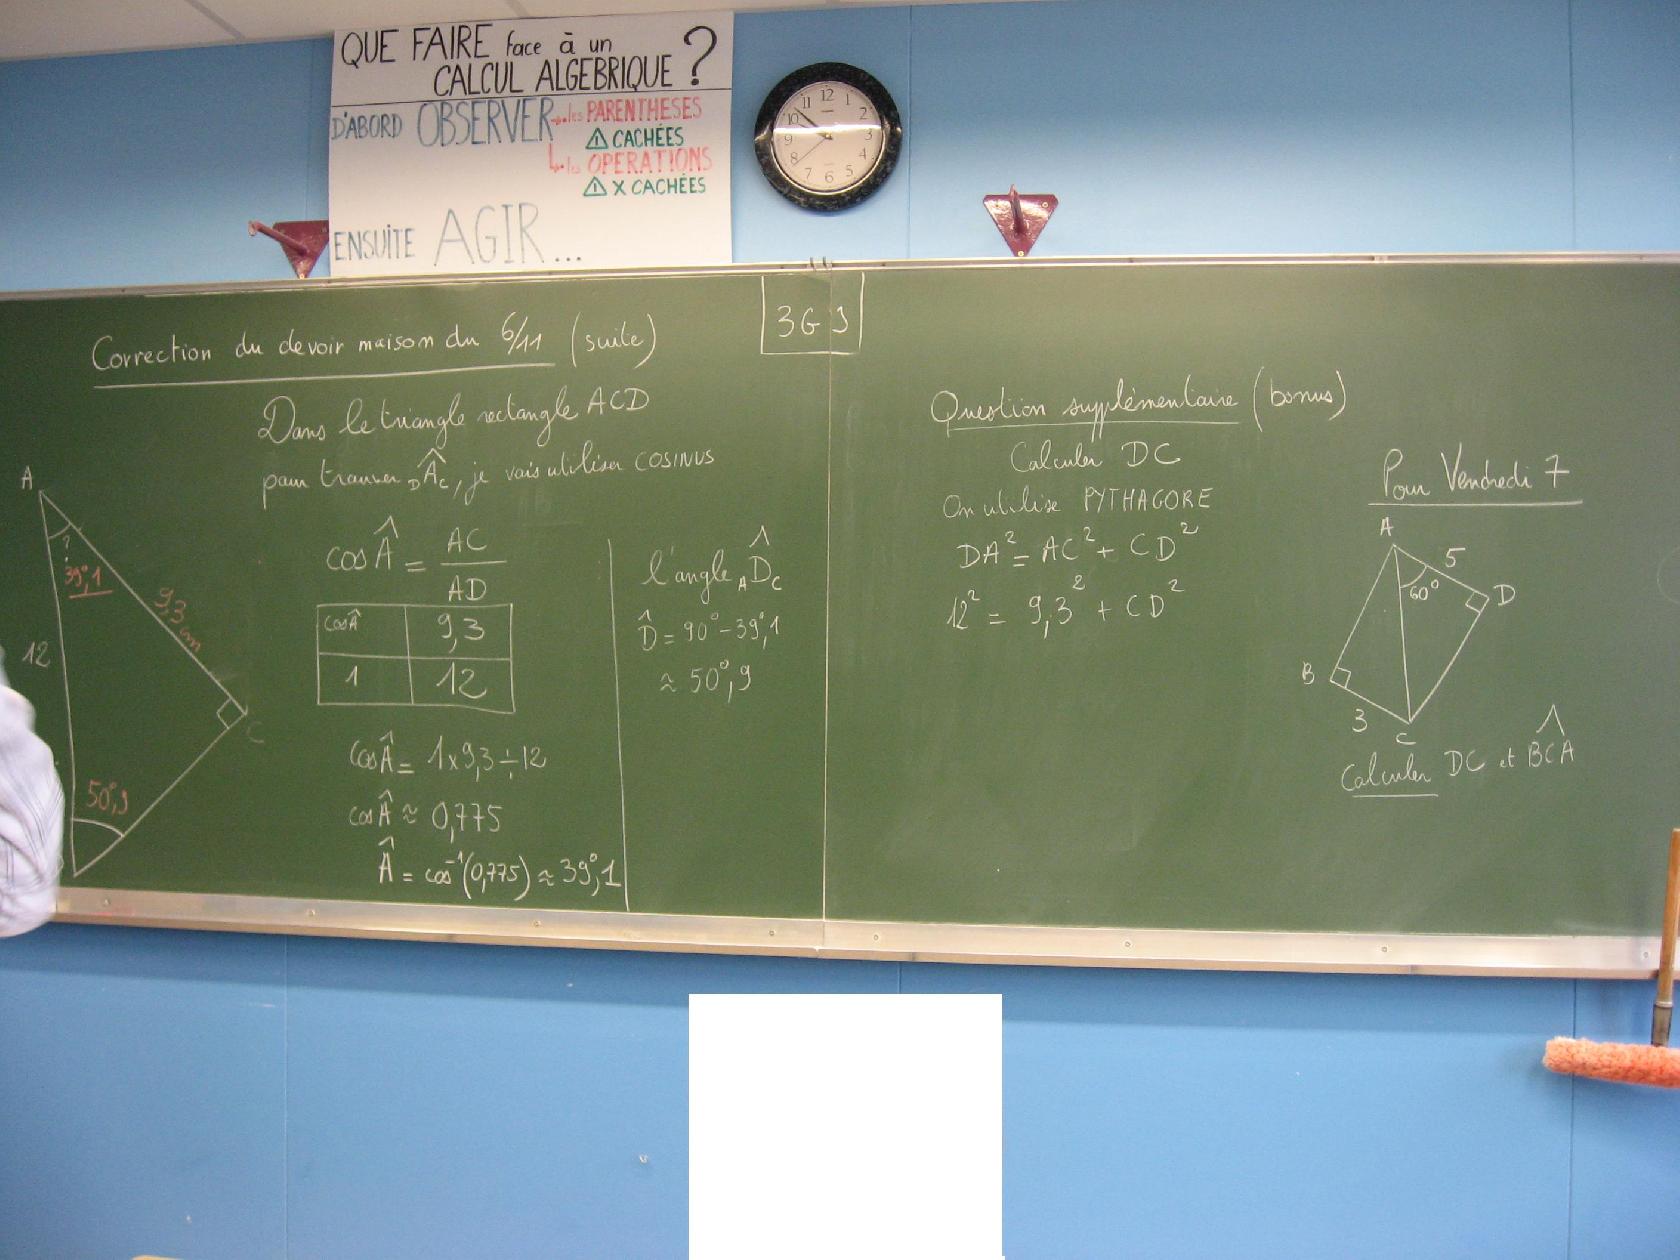 QUE FAIRE face à un
CALCUL ALGEBRIQUE ?
D'ABORD OBSERVER → les PARENTHESES
⚠ CACHÉES
↳ les OPERATIONS
⚠ X CACHÉES
ENSUITE AGIR...
12
1
2
3
4
5
6
7
8
9
10
11
3G3
Correction du devoir maison du 6/11 (suite)
Dans le triangle rectangle ACD
pour trouver DÂC, je vais utiliser COSINUS
A
?
39°,1
9,3 cm
12
C
50°,9
cos Â = AC / AD
cos Â 9,3
1 12
cos Â = 1x9,3÷12
cos Â ≈ 0,775
Â = cos⁻¹(0,775) ≈ 39°,1
l'angle AD̂C
D̂ = 90° - 39°,1
≈ 50°,9
Question supplémentaire (bonus)
Calculer DC
On utilise PYTHAGORE
DA² = AC² + CD²
12² = 9,3² + CD²
Pour Vendredi 7
A
5
60°
D
B
3
C
Calculer DC et BĈA